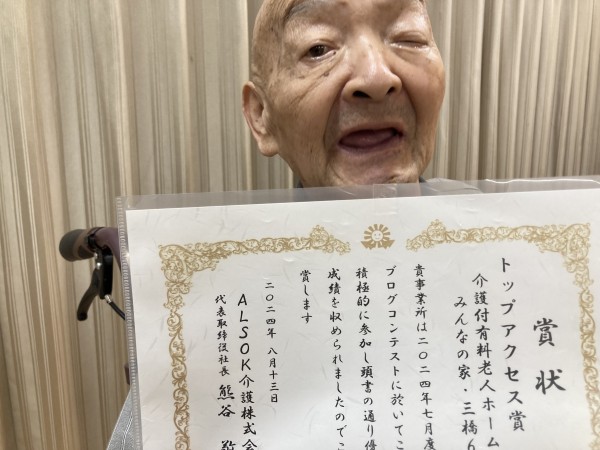 賞状
トップアクセス賞
介護付有料老人ホーム
みんなの家・三橋
貴事業所は二〇二四年七月度
ブログコンテストに於いてこ
積極的に参加し頭書の通り優
成績を収められましたのでこ
賞します
二〇二四年 八月十三日
ALSOK介護株式会
代表取締役社長 熊谷